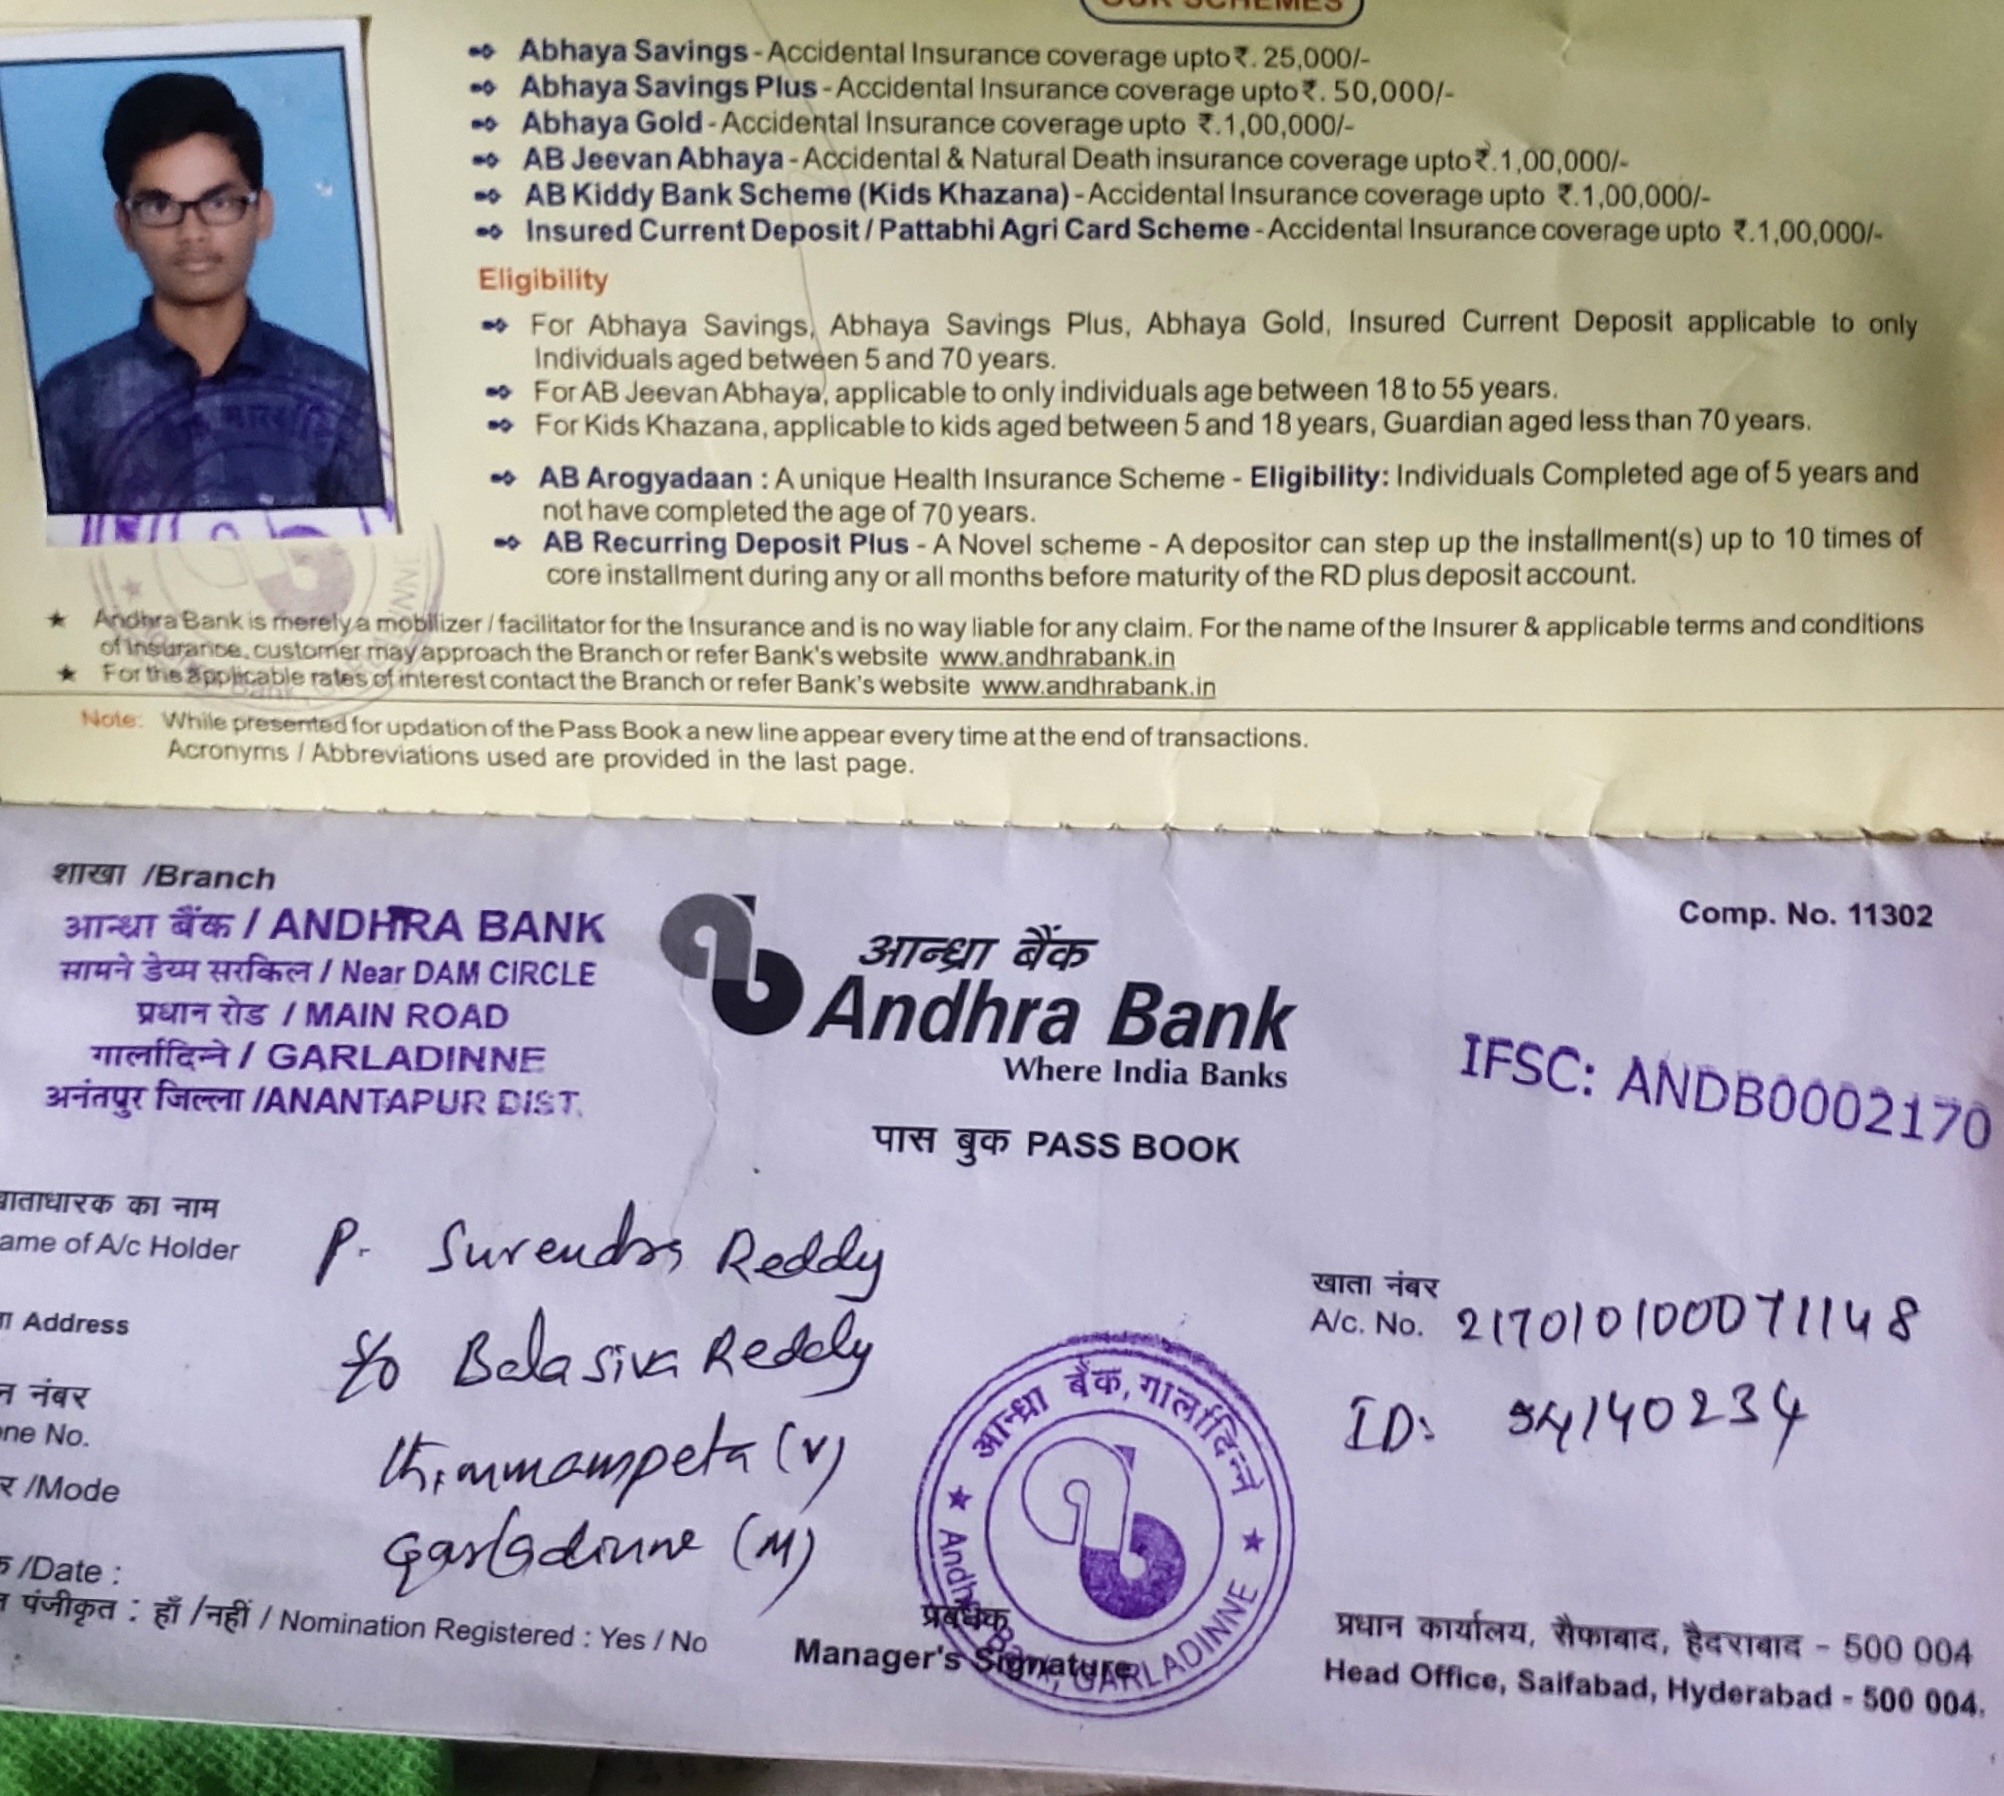 OUR SCHEMES
Abhaya Savings - Accidental Insurance coverage upto ₹. 25,000/-
Abhaya Savings Plus - Accidental Insurance coverage upto ₹. 50,000/-
Abhaya Gold - Accidental Insurance coverage upto ₹.1,00,000/-
AB Jeevan Abhaya - Accidental & Natural Death insurance coverage upto ₹.1,00,000/-
AB Kiddy Bank Scheme (Kids Khazana) - Accidental Insurance coverage upto ₹.1,00,000/-
Insured Current Deposit / Pattabhi Agri Card Scheme - Accidental Insurance coverage upto ₹.1,00,000/-
Eligibility
For Abhaya Savings, Abhaya Savings Plus, Abhaya Gold, Insured Current Deposit applicable to only
Individuals aged between 5 and 70 years.
For AB Jeevan Abhaya, applicable to only individuals age between 18 to 55 years.
For Kids Khazana, applicable to kids aged between 5 and 18 years, Guardian aged less than 70 years.
AB Arogyadaan : A unique Health Insurance Scheme - Eligibility: Individuals Completed age of 5 years and
not have completed the age of 70 years.
AB Recurring Deposit Plus - A Novel scheme - A depositor can step up the installment(s) up to 10 times of
core installment during any or all months before maturity of the RD plus deposit account.
★ Andhra Bank is merely a mobilizer / facilitator for the Insurance and is no way liable for any claim. For the name of the Insurer & applicable terms and conditions
of Insurance, customer may approach the Branch or refer Bank's website www.andhrabank.in
★ For the applicable rates of interest contact the Branch or refer Bank's website www.andhrabank.in
Note: While presented for updation of the Pass Book a new line appear every time at the end of transactions.
Acronyms / Abbreviations used are provided in the last page.
शाखा /Branch
आन्ध्रा बैंक / ANDHRA BANK
सामने डेय्म सरकिल / Near DAM CIRCLE
प्रधान रोड / MAIN ROAD
गार्लादिन्ने / GARLADINNE
अनंतपुर जिल्ला /ANANTAPUR DIST.
आन्ध्रा बैंक
Andhra Bank
Where India Banks
पास बुक PASS BOOK
Comp. No. 11302
IFSC: ANDB0002170
खाताधारक का नाम
ame of A/c Holder
P. Surendra Reddy
Address
S/o Balasiva Reddy
नंबर
ne No.
thimmampeta (V)
/Mode
Garladinne (M)
/Date :
पंजीकृत : हाँ /नहीं / Nomination Registered : Yes / No
खाता नंबर
A/c. No. 217010100071148
ID: 54140234
आन्ध्रा बैंक, गार्लादिन्ने
★ Andhra Bank, GARLADINNE ★
प्रबंधक
Manager's Signature
प्रधान कार्यालय, सैफाबाद, हैदराबाद - 500 004
Head Office, Saifabad, Hyderabad - 500 004.